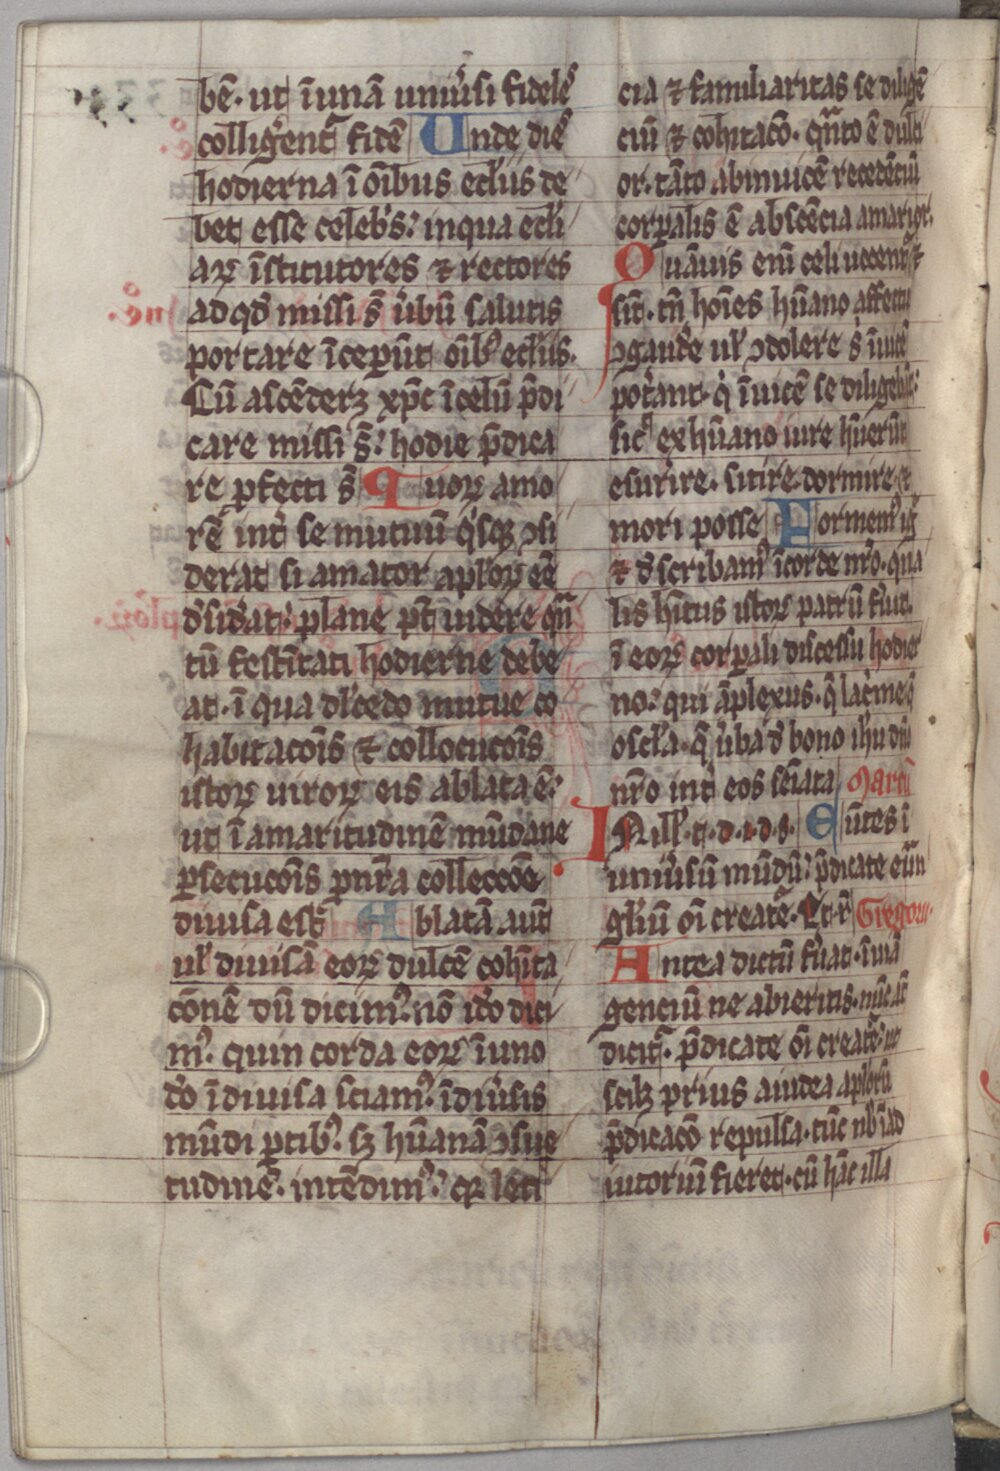 bē. ut ī unā uniũsi fidelẽs
colligẽnt fidē Unde diẽs
hodierna ī oĩbus ecl̃iis de
bet esse celebris: in qua ecl̃i
aꝝ īstitutores ⁊ rectores
ad qd̃ missi s̃ ũbū salutis
portare īceꝑūt oĩbꝰ ecl̃iis.
Cū ascēderꝫ xp̃c ī celū p̄di
care missi s̃: hodie p̄dica
re ꝑfecti s̃ Quoꝝ amo
rē int̃ se mutuū q̇sqꝫ ꝯsi
derat si amator ap̃loꝝ eē
d̃sid̃at: plane pt̃ uidere qñ
tū festĩtati hodierne debe
at. ī qua dl̃cedo mutue co
habitacōis ⁊ collocucōis
istoꝝ uiroꝝ eis ablata ē:
ut ī amaritudinē mūdane
ꝑsecucōis ꝑ nr̃a colleccōe
diuisa est Ablatā aut̃
ul̃ diuisā eoꝝ dulcē cohĩta
cōnē dū dicimꝰ: nō id̃o dici
mꝰ. quin corda eoꝝ ī uno
d̃o īdiuisa sciamꝰ. ī diũsis
mūdi ꝑtibꝰ. sꝫ hūanā ꝯsue
tudinē. intēdimꝰ: qꝛ leti
cia ⁊ familiaritas se diligē
ciū ⁊ cohĩtacō. qñto ē dulci
or. tāto ab inuicē recedēciū
corꝑalis ē abscēcia amarior.
Quāuis eni celi uecent̃ ⁊
sīt. tñ hoīes hūano affectu
ꝯgaude ul̃ ꝯdolere s̃ inuicē
pot̃ant. q̇ īuicē se diligebāt:
sicꝰ ex hūano iure hũerūt
esurire. sitire. dormire. ⁊
mori posse Formemꝰ ig̃
⁊ d̃scribamꝰ ī corde nr̃o. qua
lis hĩtus istoꝝ patrū fũit.
ī eoꝝ corꝑali discessu hodier
no: qui āplexus. q̄ lac̃me. q̄
oscl̃a. q̄ ũba d̃ bono ih̃u dñi
nr̃o int̃ eos sẽiata Marcū
In ill̃. t. d. i. d. s. Eūtes ī
uniũsū mūdū: p̄dicate euā
gl̃iū oĩ creatẽ. Et r̃ Gregorii.
Antea dictū fũat. ī uiā
genciū ne abieritis. nūc aūt
dicit̃. p̄dicate oĩ creatẽ: ut
scil̃ꝫ prius a iudea ap̃lorū
p̄dicacō repulsa. tūc nb̃ ī ad
iutoriū fieret. cū hāc illa